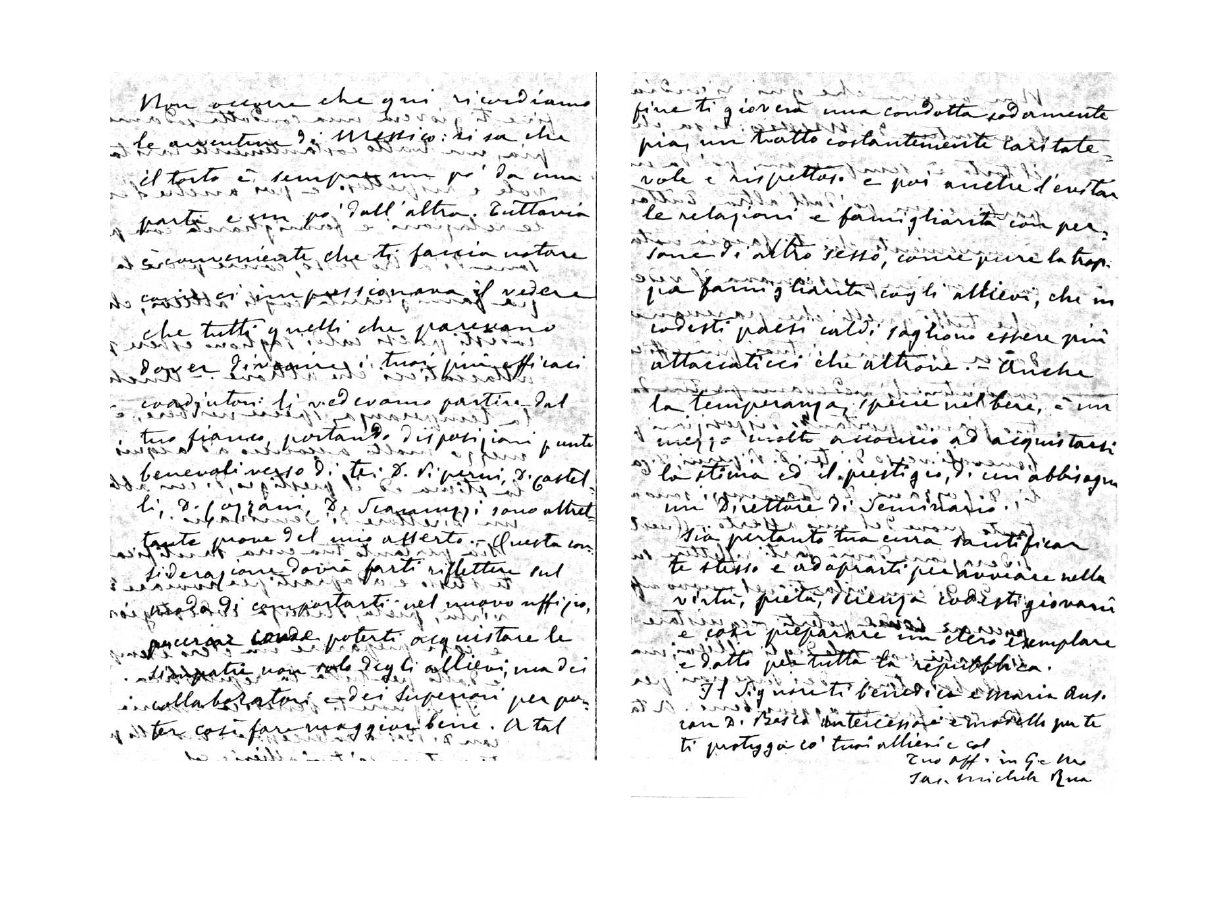 Non occorre che qui ricordiamo
le avventure di Messico: si sa che
il torto è sempre un po' da una
parte e un po' dall'altra. Tuttavia
è conveniente che ti faccia notare
come ci impressionava il vedere
che tutti quelli che parevano
dover divenire i tuoi più efficaci
coadjutori li vedevamo partire dal
tuo fianco, portando disposizioni punto
benevoli verso di te: D. Piperni, D. Castel-
li, D. Cozzani, D. Scavuzzi sono altret-
tante prove del mio asserto. - Questa con-
siderazione dovrà farti riflettere sul
modo di comportarti nel nuovo uffizio,
procurar poterti acquistare le
simpatie non solo degli allievi, ma dei
collaboratori e dei Superiori per po-
ter così fare maggior bene. A tal
fine ti gioverà una condotta sodamente
pia, un tratto costantemente caritate-
vole e rispettoso e poi anche l'evitar
le relazioni e famigliarità con per-
sone di altro sesso, come pure la trop-
pa famigliarità cogli allievi, che in
codesti paesi caldi sogliono essere più
attaccaticci che altrove. - Anche
la temperanza, specie nel bere, è un
mezzo molto acconcio ad acquistarsi
la stima ed il prestigio, di cui abbisogna
un Direttore di Seminario.
Sia pertanto tua cura santificar
te stesso e adoprarti per avviare nella
virtù, pietà, scienza codesti giovani
e così preparare un clero esemplare
e dotto per tutta la repubblica.
Il Signore ti benedica e Maria Aus.
con D. Bosco intercessore e modello per te
ti protegga co' tuoi allievi e col
Tuo aff. in G. e M.
Sac. Michele Rua